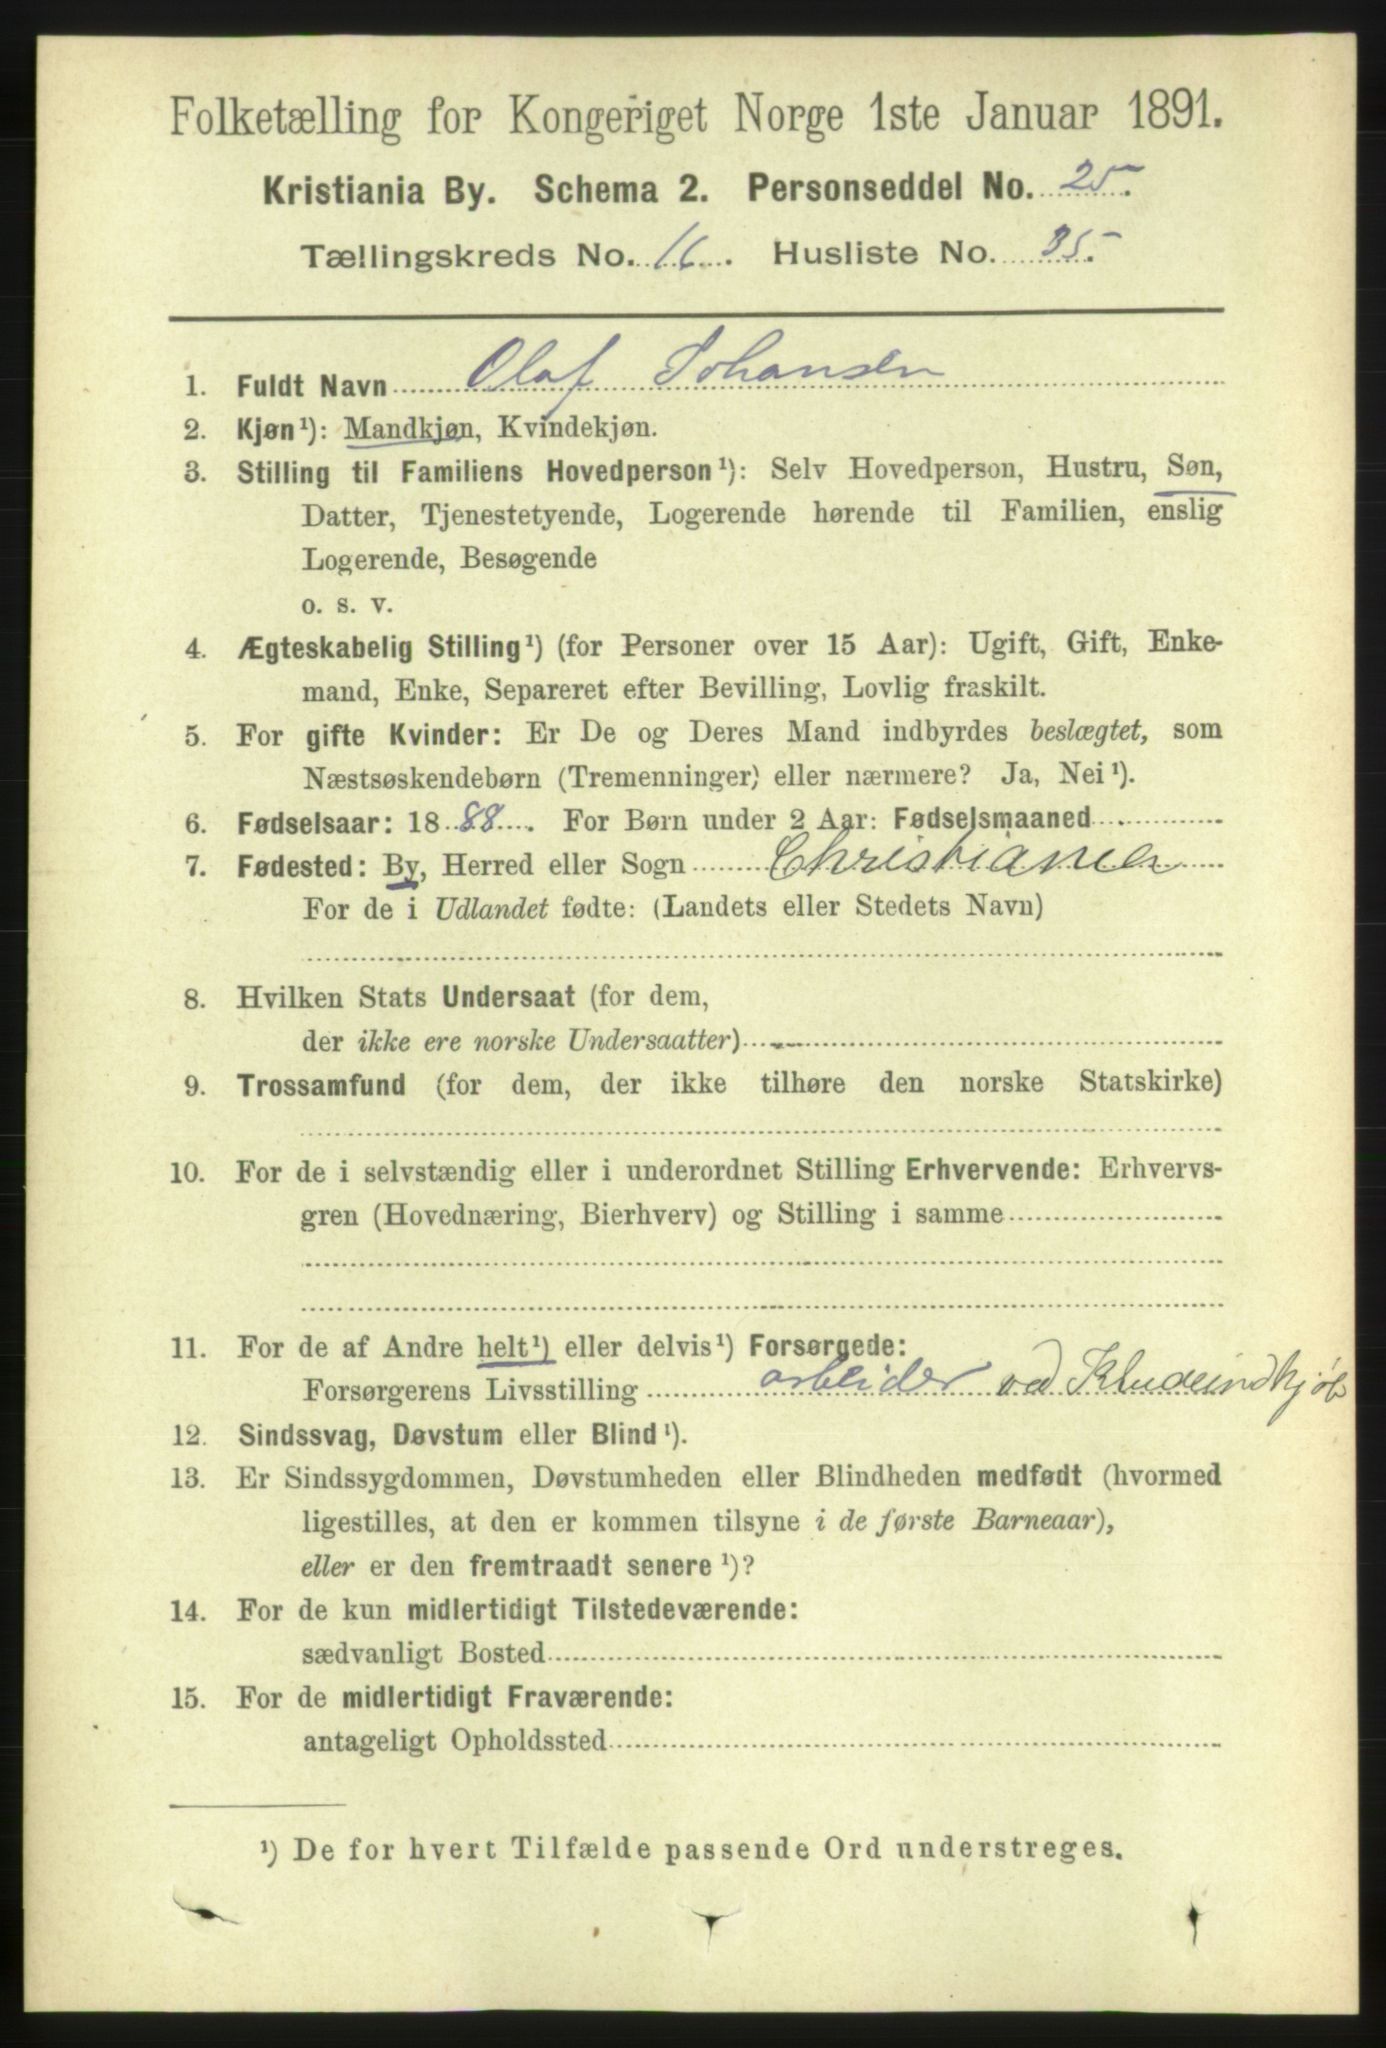 Folketælling for Kongeriget Norge 1ste Januar 1891.
Kristiania By. Schema 2. Personseddel No. 25.
Tællingskreds No. 16. Husliste No. 35.
1. Fuldt Navn Olaf Johansen
2. Kjøn¹): Mandkjøn, Kvindekjøn.
3. Stilling til Familiens Hovedperson¹): Selv Hovedperson, Hustru, Søn,
Datter, Tjenestetyende, Logerende hørende til Familien, enslig
Logerende, Besøgende
o. s. v.
4. Ægteskabelig Stilling¹) (for Personer over 15 Aar): Ugift, Gift, Enke-
mand, Enke, Separeret efter Bevilling, Lovlig fraskilt.
5. For gifte Kvinder: Er De og Deres Mand indbyrdes beslægtet, som
Næstsøskendebørn (Tremenninger) eller nærmere? Ja, Nei¹).
6. Fødselsaar: 1888. For Børn under 2 Aar: Fødselsmaaned
7. Fødested: By, Herred eller Sogn Christiania
For de i Udlandet fødte: (Landets eller Stedets Navn)
8. Hvilken Stats Undersaat (for dem,
der ikke ere norske Undersaatter)
9. Trossamfund (for dem, der ikke tilhøre den norske Statskirke)
10. For de i selvstændig eller i underordnet Stilling Erhvervende: Erhvervs-
gren (Hovednæring, Bierhverv) og Stilling i samme
11. For de af Andre helt¹) eller delvis¹) Forsørgede:
Forsørgerens Livsstilling arbeider ved Kludeindkjøb
12. Sindssvag, Døvstum eller Blind¹).
13. Er Sindssygdommen, Døvstumheden eller Blindheden medfødt (hvormed
ligestilles, at den er kommen tilsyne i de første Barneaar),
eller er den fremtraadt senere¹)?
14. For de kun midlertidigt Tilstedeværende:
sædvanligt Bosted
15. For de midlertidigt Fraværende:
antageligt Opholdssted
¹) De for hvert Tilfælde passende Ord understreges.